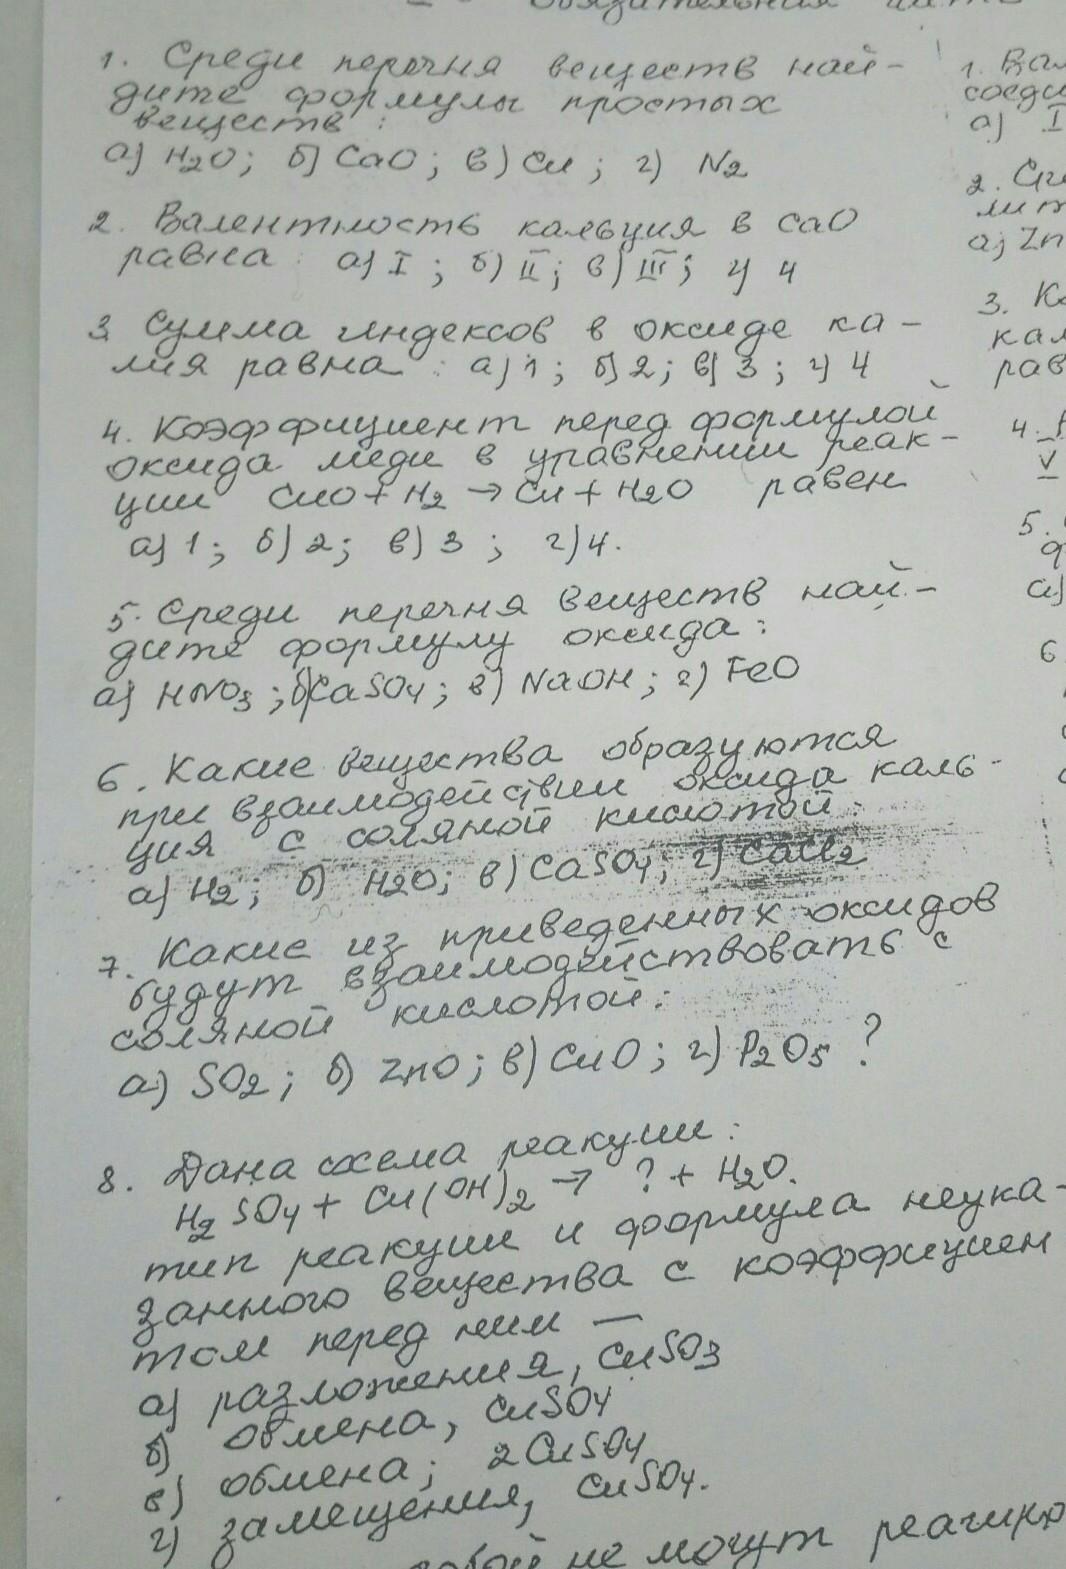 Обязательная часть
1. Среди перечня веществ най-
дите формулы простых
веществ:
а) H2O; б) CaO; в) Cu; г) N2
2. Валентность кальция в CaO
равна а) I; б) II; в) III; г) 4
3 Сумма индексов в оксиде ка-
лия равна: а) 1; б) 2; в) 3; г) 4
4. Коэффициент перед формулой
оксида меди в уравнении реак-
ции CuO + H2 → Cu + H2O равен
а) 1; б) 2; в) 3; г) 4.
5. Среди перечня веществ най-
дите формулу оксида:
а) HNO3; б) CaSO4; в) NaOH; г) FeO
6. Какие вещества образуются
при взаимодействии оксида каль-
ция с соляной кислотой:
а) H2; б) H2O; в) CaSO4; г) CaCl2
7. Какие из приведенных оксидов
будут взаимодействовать с
соляной кислотой:
а) SO2; б) ZnO; в) CuO; г) P2O5?
8. Дана схема реакции:
H2SO4 + Cu(OH)2 → ? + H2O.
тип реакции и формула неука-
занного вещества с коэффициен
том перед ним —
а) разложения, CuSO3
б) обмена, CuSO4
в) обмена; 2CuSO4
г) замещения, CuSO4.
собой не могут реагиро
1. Вал
соеди
а) I
2.
а) Zn
3. Ко
кал
рав
4.
V
5.
ф
а)
6